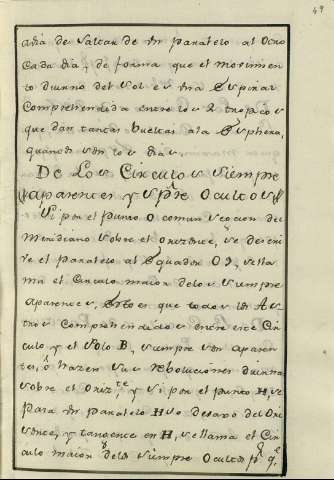 49
adia de saltar de Un paralelo al Otro
Cada dia, de forma que el movimien
to diurno del Sol es Una Espiral
Comprehendida entre los 2 tropicos
que dan tantas bueltas ala Esphera,
quantos son los dias.
De Los Circulos Siempre
aparentes y Spre Ocultos
Si por el punto O comun Seccion del
Meridiano Sobre el Orizonte, se descri
ve el paralelo al Equador O I, se lla
ma el Circulo maior delos Siempre
aparentes, Esto es que todos los As
tros Comprehendidos entre este Cir
culo y el Polo B, siempre son aparen
tes, o hazen sus reboluciones diurnas
Sobre el Orizte y Si por el punto H, se
para Un paralelo H debaxo del Ori
zonte, y tangente en H, se llama el Cir
culo maior delos Siempre Ocultos pq